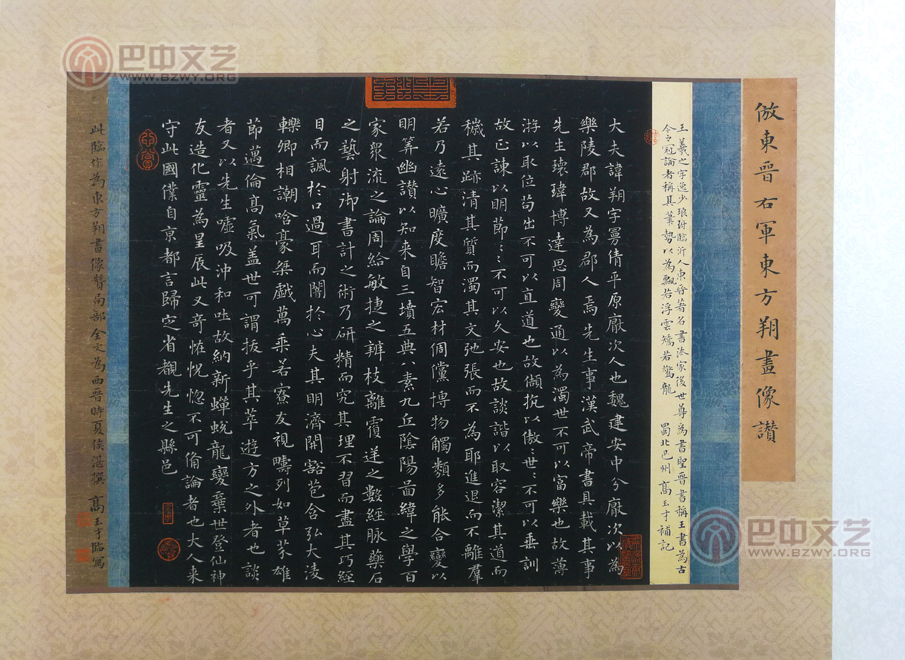 巴中文艺
WWW.BZWY.ORG
倣東晉右軍東方朔畫像讚
王羲之字逸少琅琊臨沂人東晉著名書法家後世尊為書聖晉書稱王書為古
今之冠論者稱其筆勢以為飄若浮雲矯若驚龍 蜀北巴州高玉才補記
大夫諱朔字曼倩平原厭次人也魏建安中分厭次以為
樂陵郡故又為郡人焉先生事漢武帝書具載其事
先生瓌瑋博達思周變通以為濁世不可以富樂也故薄
游以取位苟出不可以直道也故頡抗以傲世〻不可以垂訓
故正諫以明節〻不可以久安也故談諧以取容潔其道而
穢其跡清其質而濁其文弛張而不為耶進退而不離羣
若乃遠心曠度瞻智宏材倜儻博物觸類多能合變以
明筭幽讚以知來自三墳五典八素九丘陰陽啚緯之學百
家衆流之論周給敏捷之辨枝離覆逆之數經脉藥石
之藝射御書計之術乃研精而究其理不習而盡其巧經
目而諷於口過耳而闇於心夫其明濟開豁苞含弘大淩
轢卿相謿哈豪桀戲萬乘若寮友視疇列如草芥雄
節邁倫高氣盖世可謂拔乎其萃遊方之外者也談
者又以先生噓吸沖和吐故納新蟬蛻龍變棄世登仙神
友造化靈為星辰此又奇恠怳惚不可備論者也大人来
守此國僕自京都言歸定省覩先生之縣邑
此臨作為東方朔畫像贊局部全文為西晉時夏侯湛撰 高玉才臨寫
巴中文艺
WWW.BZWY.ORG